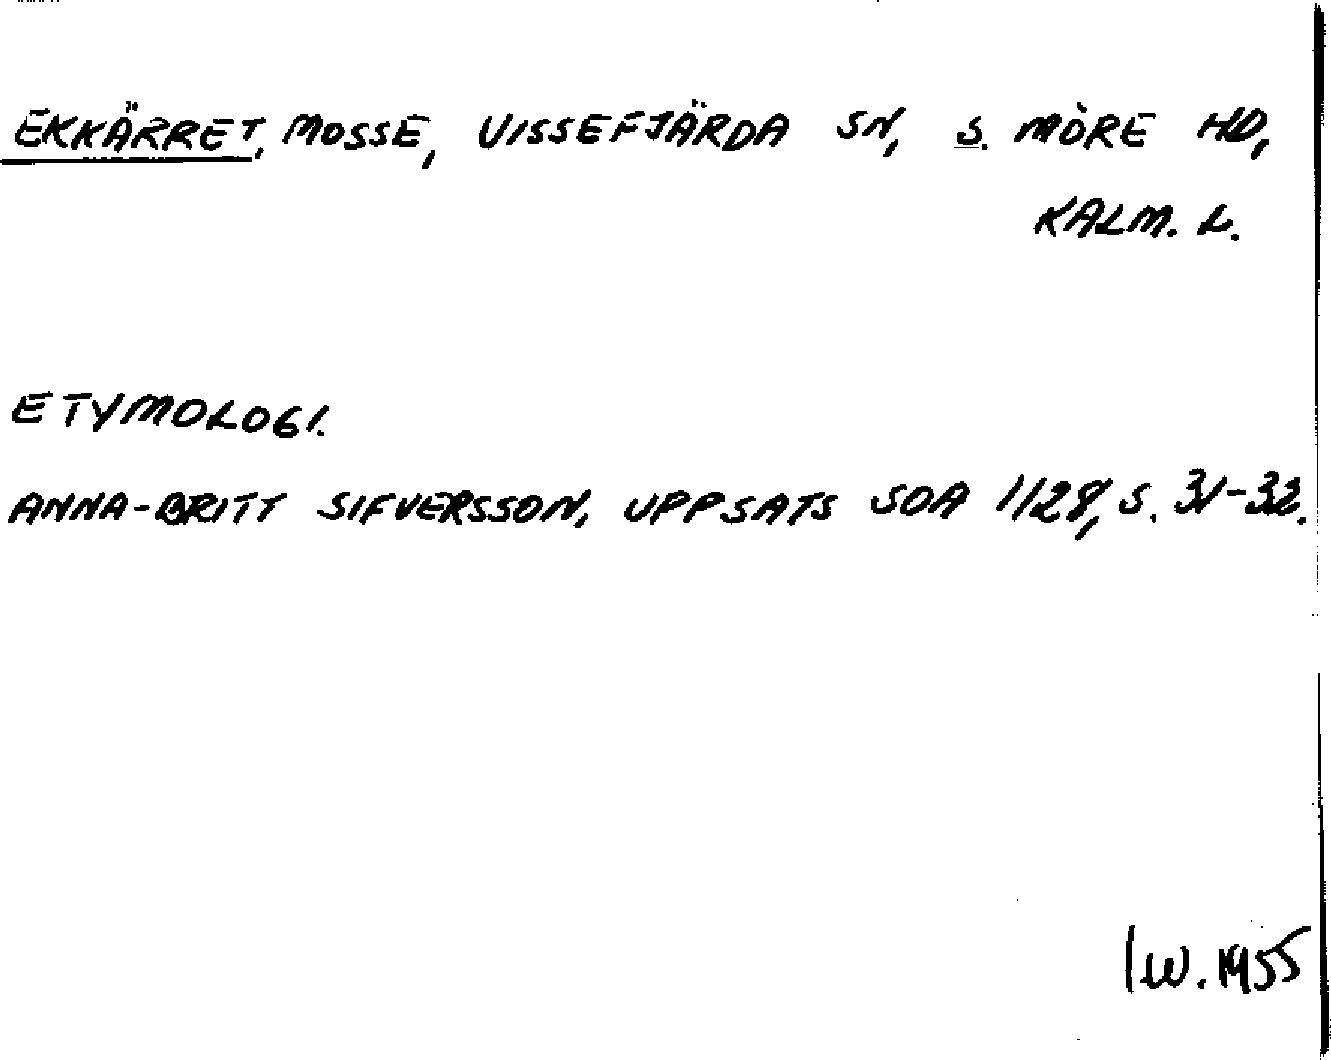 EKKÄRRET, MOSSE, VISSEFJÄRDA SN, S. MÖRE HD,
KALM. L.
ETYMOLOGI.
ANNA-BRITT SIFVERSSON, UPPSATS SOA 1128, S. 31-32.
IW. 1955